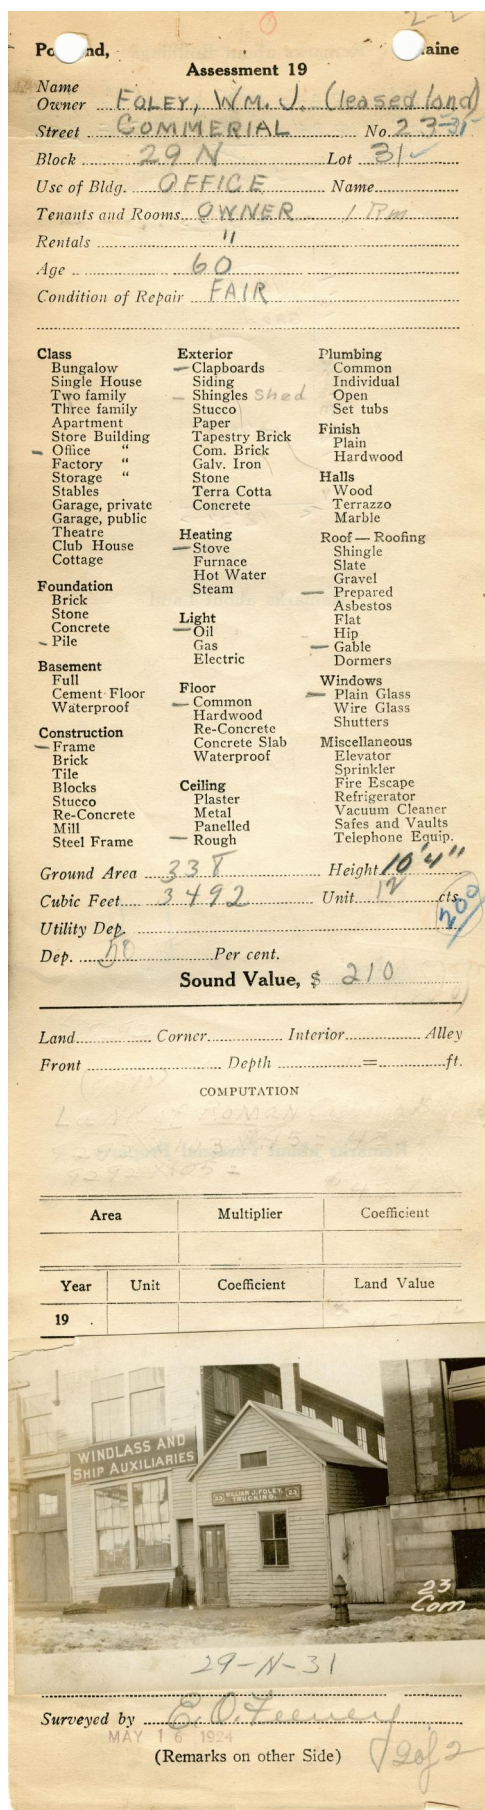 2-2
Po nd, aine
Assessment 19
Name
Owner FOLEY, WM. J. (leased land)
Street COMMERIAL No. 23-31
Block 29 N Lot 31
Use of Bldg. OFFICE Name
Tenants and Rooms OWNER 1 Rm
Rentals "
Age 60
Condition of Repair FAIR
Class
Bungalow
Single House
Two family
Three family
Apartment
Store Building
Office "
Factory "
Storage "
Stables
Garage, private
Garage, public
Theatre
Club House
Cottage
Foundation
Brick
Stone
Concrete
Pile
Basement
Full
Cement Floor
Waterproof
Construction
Frame
Brick
Tile
Blocks
Stucco
Re-Concrete
Mill
Steel Frame
Exterior
Clapboards
Siding
Shingles Shed
Stucco
Paper
Tapestry Brick
Com. Brick
Galv. Iron
Stone
Terra Cotta
Concrete
Heating
Stove
Furnace
Hot Water
Steam
Light
Oil
Gas
Electric
Floor
Common
Hardwood
Re-Concrete
Concrete Slab
Waterproof
Ceiling
Plaster
Metal
Panelled
Rough
Plumbing
Common
Individual
Open
Set tubs
Finish
Plain
Hardwood
Halls
Wood
Terrazzo
Marble
Roof — Roofing
Shingle
Slate
Gravel
Prepared
Asbestos
Flat
Hip
Gable
Dormers
Windows
Plain Glass
Wire Glass
Shutters
Miscellaneous
Elevator
Sprinkler
Fire Escape
Refrigerator
Vacuum Cleaner
Safes and Vaults
Telephone Equip.
Ground Area 338 Height 10'4"
Cubic Feet 3492 Unit 12 cts.
200
Utility Dep.
Dep. 50 Per cent.
Sound Value, $ 210
Land Corner Interior Alley
Front Depth = ft.
COMPUTATION
Area Multiplier Coefficient
Year Unit Coefficient Land Value
19 .
WINDLASS AND
SHIP AUXILIARIES
23 WILLIAM J. FOLEY, 23
TRUCKING.
23
Com
29-N-31
Surveyed by E. O. Feeney
MAY 16 1924
(Remarks on other Side)
2 of 2